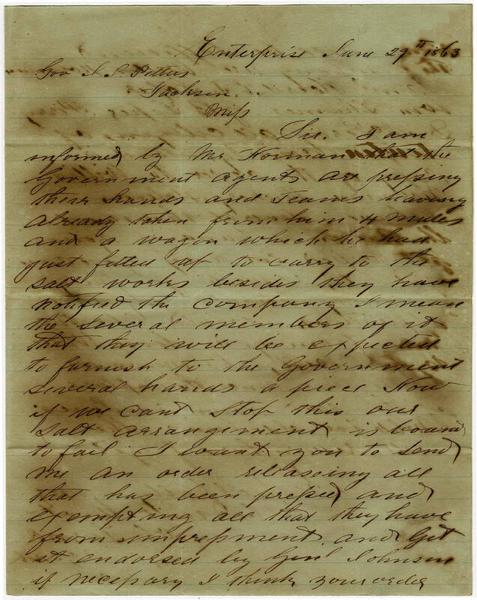 Enterprise June 29th 1863
Gov J. J. Pettus
Jackson
Miss
Sir. I am
informed by Mr Norman that the
Government agents are pressing
there hands and Teams having
already taken from him 4 mules
and a wagon which he had
just fitted up to carry to the
salt works besides they have
notified the Company I mean
the several members of it
that they will be expected
to furnish to the Government
several hands a piece Now
if we cant stop this our
salt arrangement is bound
to fail I want you to send
me an order releasing all
that has been pressed and
exempting all that they have
from impressment and get
it endorsed by Genl Johnson
if necessary I think your order